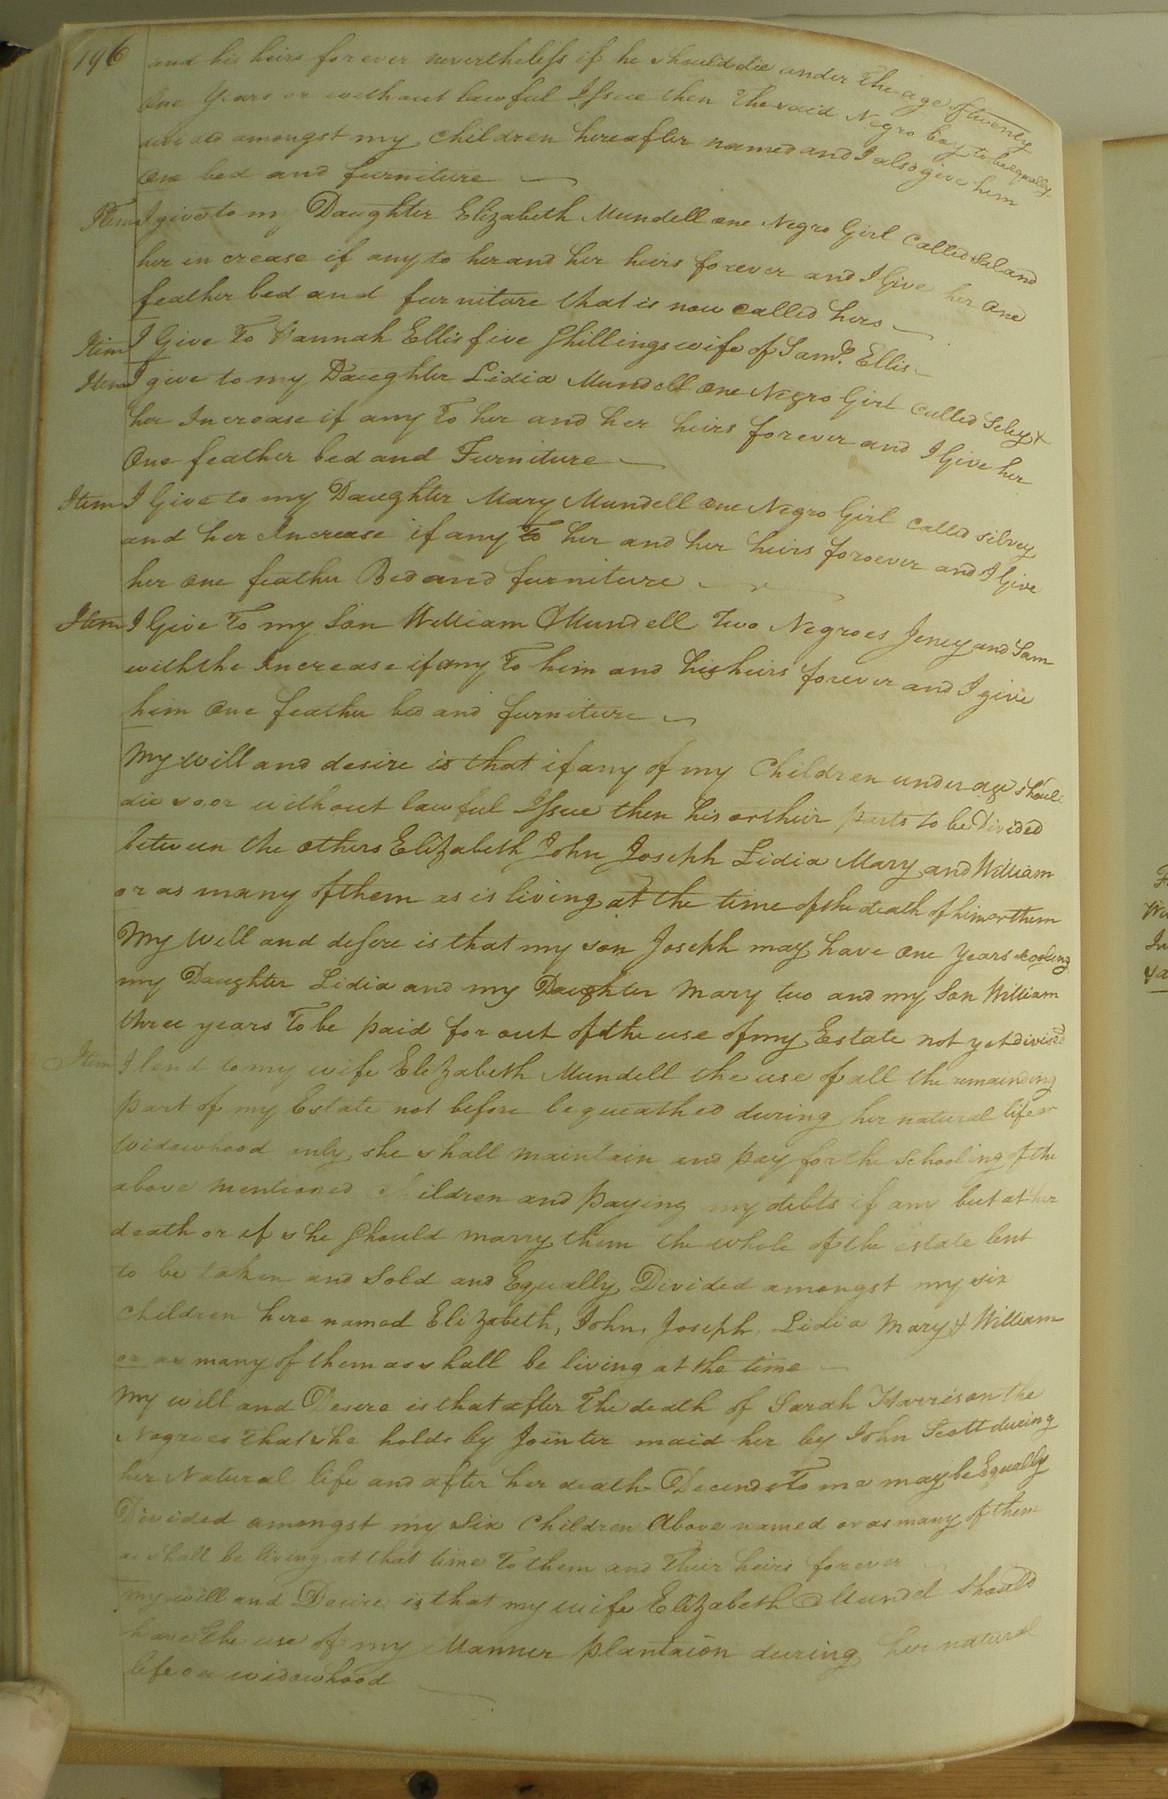 196
and his heirs forever nevertheless if he should die under the age of twenty
One Years or without lawful Issue then the said Negro boy to be equally
divided amongst my children hereafter named and I also give him
one bed and furniture
Item I give to my Daughter Elizabeth Mundell one Negro Girl called Sal and
her increase if any to her and her heirs forever and I Give her one
feather bed and furniture that is now called hers
Item I Give To Hannah Ellis five Shillings wife of Saml. Ellis
Item I give to my Daughter Lidia Mundell one Negro Girl called Seley &
her Increase if any To her and her heirs forever and I Give her
One feather bed and Furniture
Item I Give to my Daughter Mary Mundell one Negro Girl called silvey
and her Increase if any To her and her heirs foroever and I Give
her one feather Bed and furniture
Item I Give To my Son William Mundell Two Negroes Jeney and Sam
with the Increase if any To him and his heirs forever and I give
him One feather bed and furniture
My will and desire is that if any of my Children under age should
die so or without lawful Issue then his or their parts to be Divided
between the others Elizabeth John Joseph Lidia Mary and William
or as many of them as is living at the time of the death of him or them
My Will and desire is that my son Joseph may have one years scooling
my Daughter Lidia and my Daughter Mary two and my Son William
three years To be paid for out of the use of my Estate not yet divised
Item I lend to my wife Elizabeth Mundell the use of all the remaining
part of my Estate not before bequeathed during her natural life or
Widowhood only, she shall maintain and pay for the Schooling of the
above mentioned Children and paying my debts if any but at her
death or if she Should marry them the whole of the estate lent
to be taken and Sold and Equally Divided amongst my six
Children here named Elizabeth, John, Joseph Lidia Mary & William
or as many of them as shall be living at the time
My will and Desere is that after The death of Sarah Harrison the
Negroes that she holds by Jointer maid her by John Scott during
her Natural life and after her death Decends To me may be Equally
Divided amongst my Six Children Above named or as many of them
as shall be living at that time To them and Their heirs forever
my will and Desire is that my wife Elizabeth Mundel should
have the use of my Manner plantaion during her natural
life or widowhood